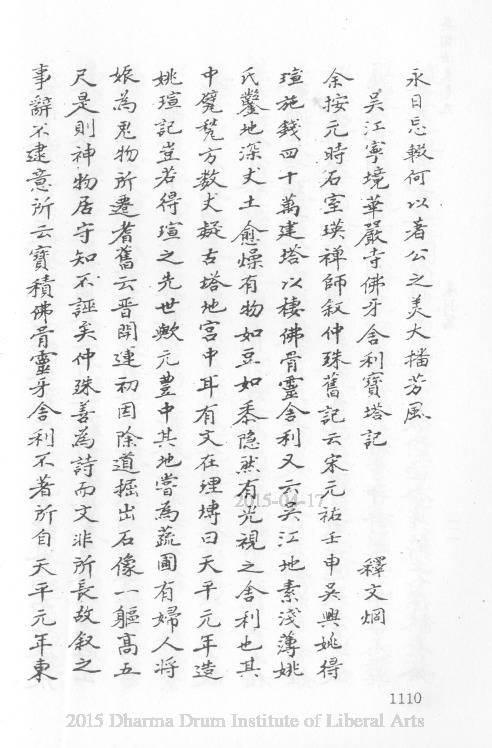 永日忘輟何以著公之美大播芳風
吳江寧境華嚴寺佛牙舍利寶塔記
釋文烱
余按元時石室瑛禪師叙仲殊舊記云宋元祐壬申吳興姚得
瑄施錢四十萬建塔以棲佛骨靈舍利又云吳江地素淺薄姚
氏鑿地深丈土愈燥有物如豆如黍隐然有光視之舍利也其
中甃甓方数丈疑古塔地宫中耳有文在理塼曰天平元年造
姚瑄記豈若得瑄之先世歟元豊中其地嘗為蔬圃有婦人將
娠為鬼物所遷耆舊云晋開運初因除道掘出石像一軀高五
尺是則神物居守知不誣矣仲殊善為詩而文非所長故叙之
事辭不逮意所云寶積佛骨靈牙舍利不著所自天平元年東
1110
2015-04-17
2015 Dharma Drum Institute of Liberal Arts